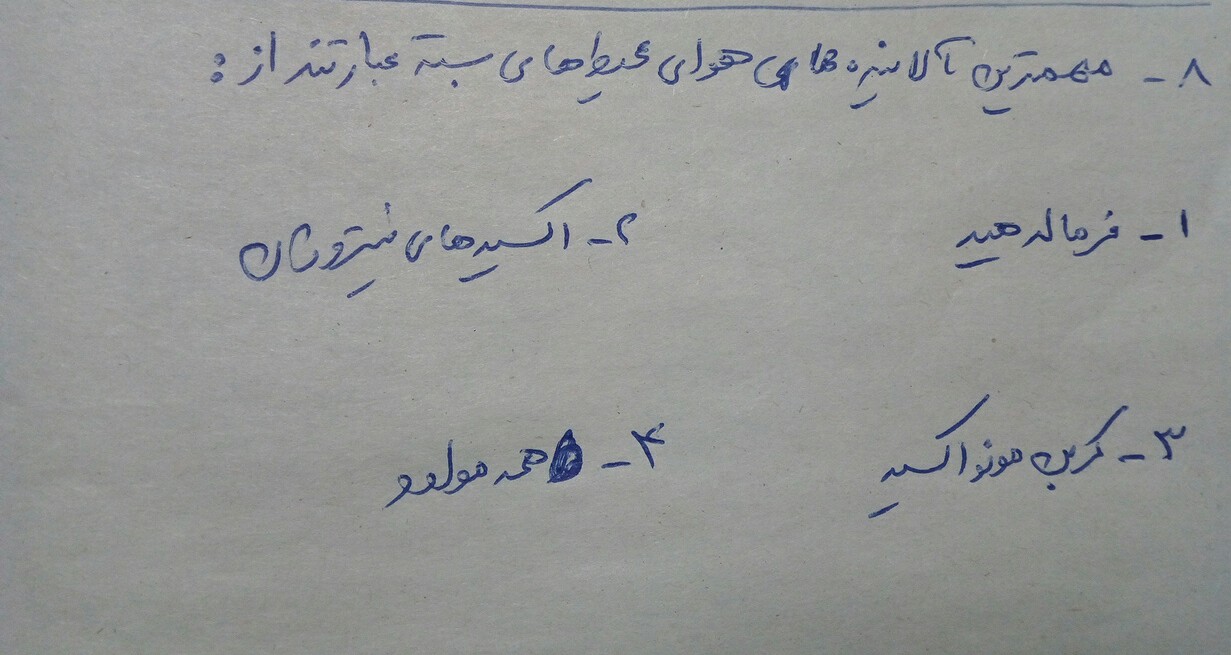 ۸ - مهمترین آلاینده های هوای محیط‌های بسته عبارتند از :
۱ - فرمالدهید ۲ - اکسیدهای نیتروژن
۳ - کربن مونواکسید ۴ - همه موارد